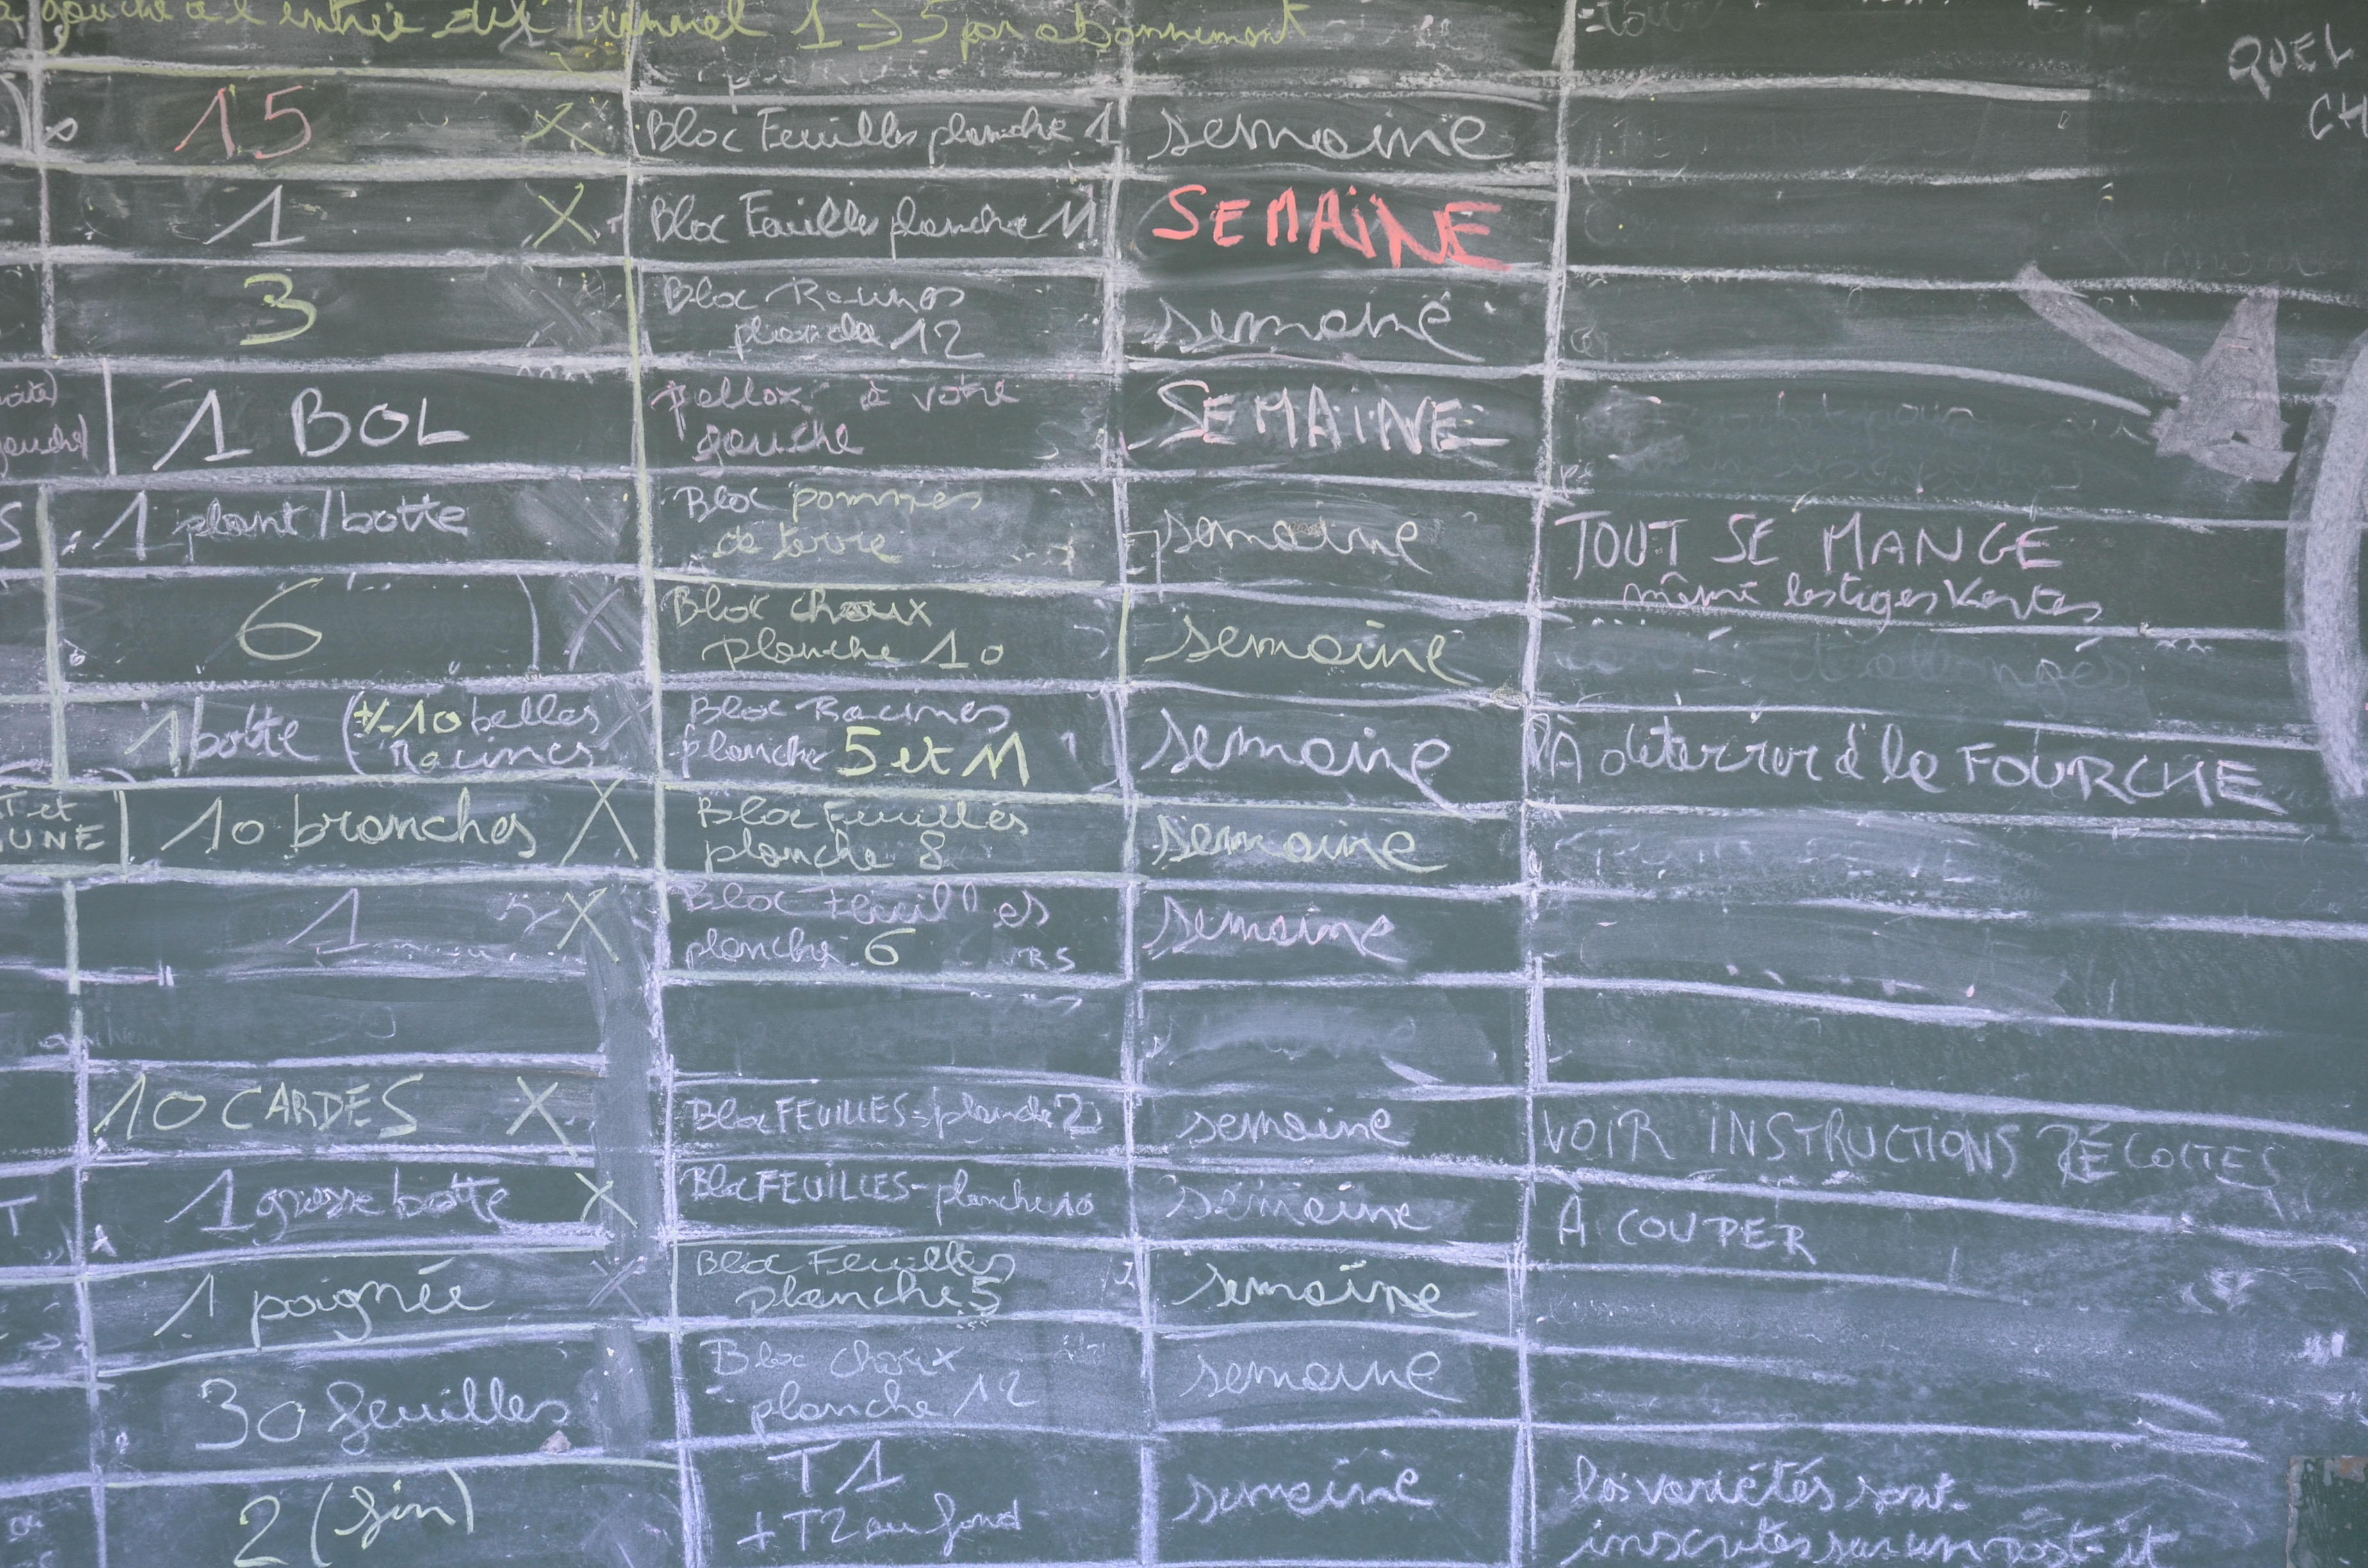 gauche à l'entrée du tunnel 1 → 5 par abonnement
QUEL
CH
15 X Bloc Feuilles planche 1 semaine
1 X Bloc Feuilles planche 11 SEMAINE
3 Bloc Racines semaine
planche 12
1 BOL pallox à votre SEMAINE
gauche
1 plant/botte Bloc pommes semaine TOUT SE MANGE
de terre même les tiges vertes
6 X Bloc choux semaine
planche 10
1 botte (+/- 10 belles Bloc Racines semaine À déterrer à la FOURCHE
Racines planche 5 et 11
T et
UNE 10 branches X Bloc Feuilles semaine
planche 8
1 X Bloc Feuilles semaine
planche 6
10 CARDES X Bloc FEUILLES - planche 2 semaine VOIR INSTRUCTIONS RÉCOLTES
T 1 grosse botte X Bloc FEUILLES - planche 10 semaine À COUPER
1 poignée X Bloc Feuilles semaine
planche 5
30 feuilles Bloc choux semaine
planche 12
2 (fin) T1 semaine les variétés sont
+ T2 au fond inscrites sur un post-it